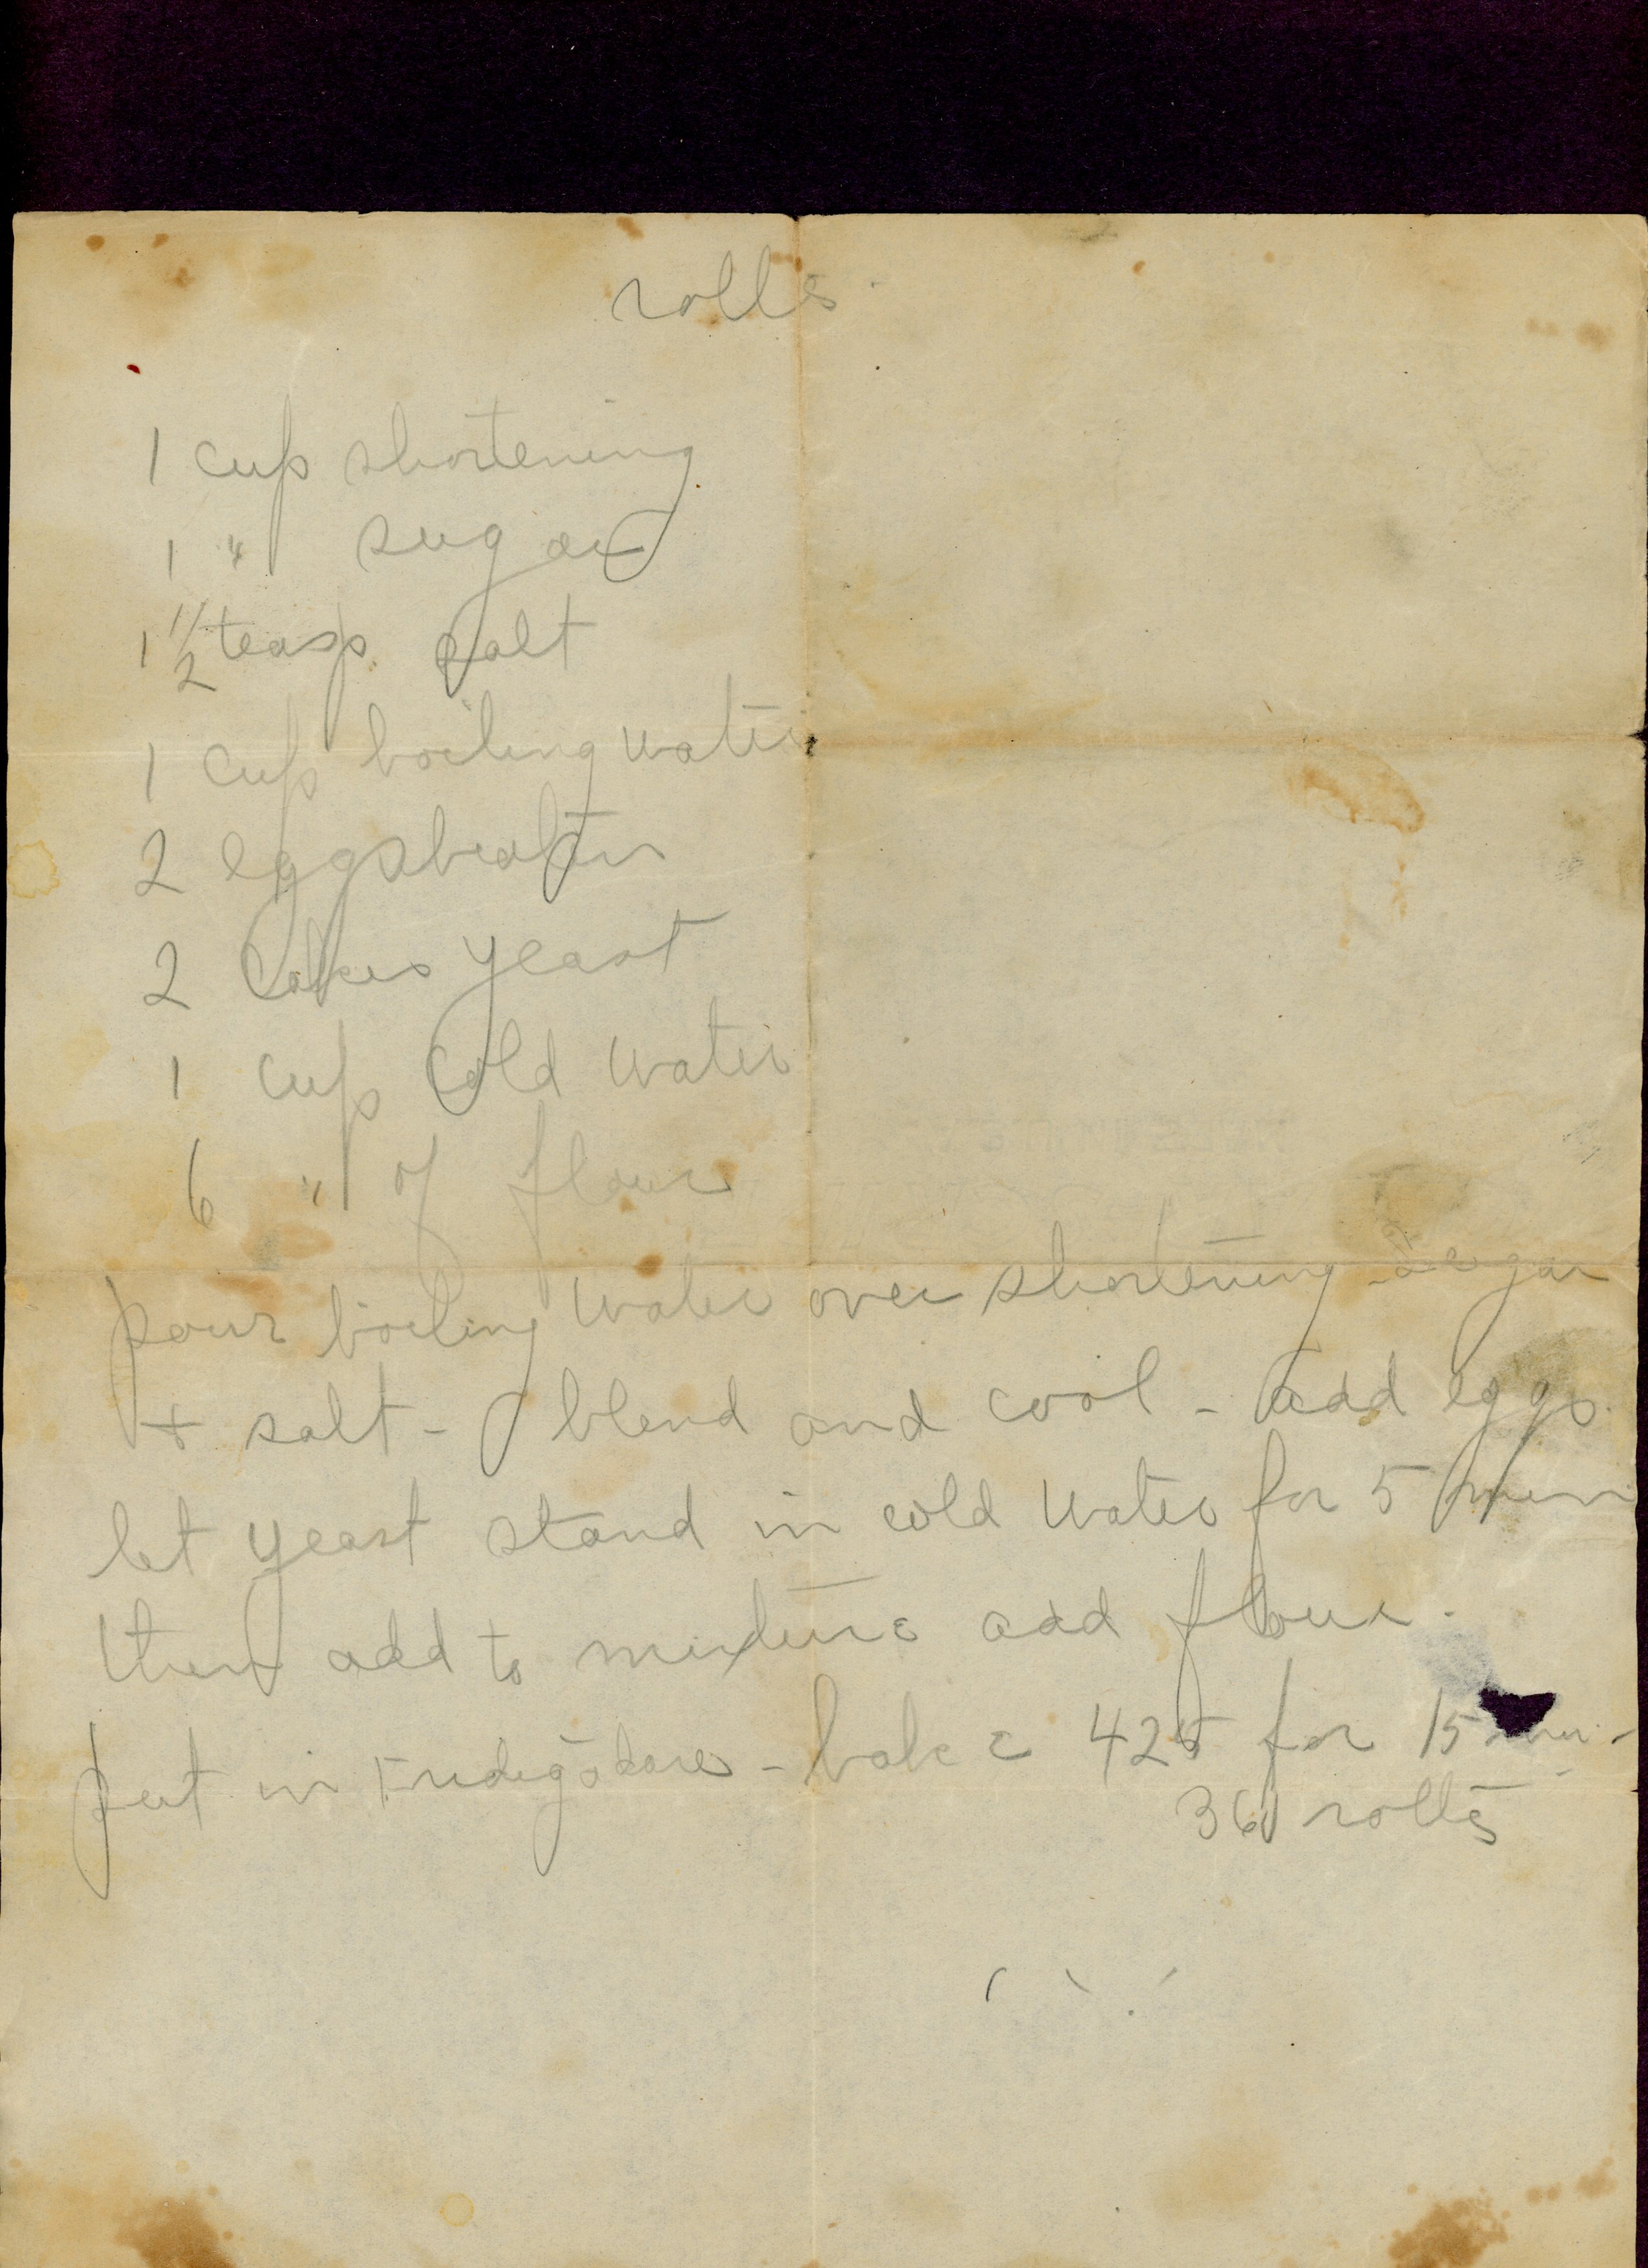 rolls.
1 cup shortening
1 " sugar
1 1/2 teasp. salt
1 cup boiling water
2 eggs beaten
2 cakes yeast
1 cup cold water
6 " of flour
pour boiling water over shortening sugar
+ salt - blend and cool - add eggs.
let yeast stand in cold water for 5 min
then add to mixture add flour.
put in - bake 425 for 15 min -
36 rolls